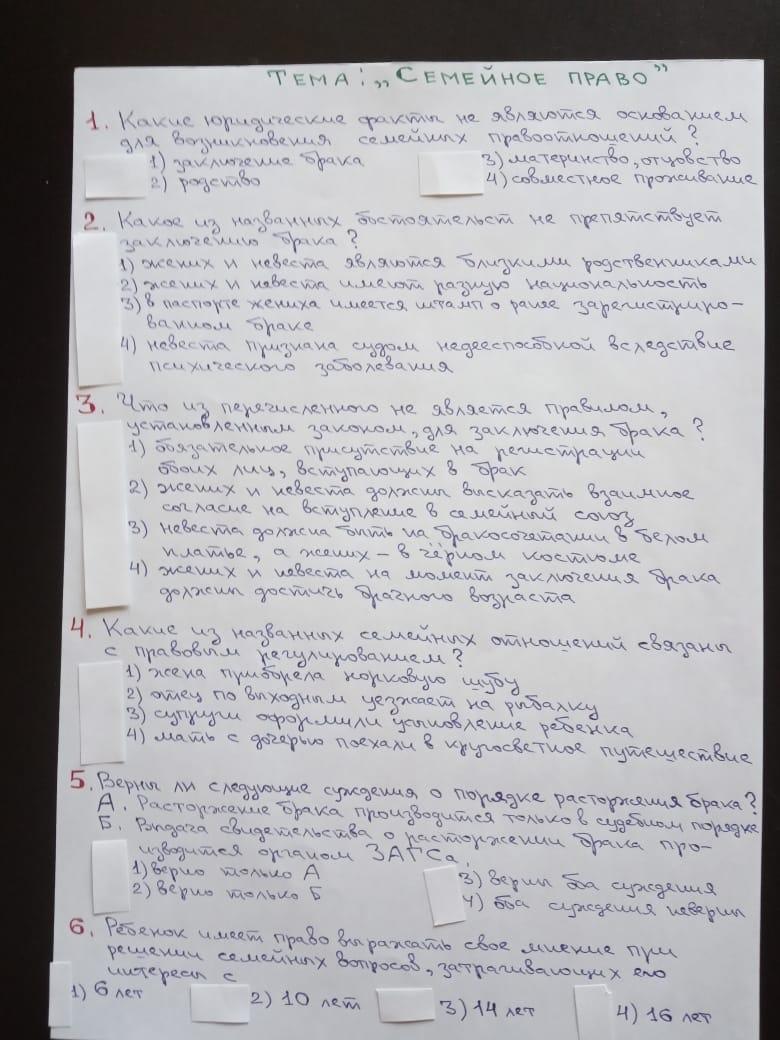 Тема: „Семейное право”
1. Какие юридические факты не являются основанием
для возникновения семейных правоотношений?
1) заключение брака
2) родство
3) материнство, отцовство
4) совместное проживание
2. Какое из названных обстоятельст не препятствует
заключению брака?
1) жених и невеста являются близкими родственниками
2) жених и невеста имеют разную национальность
3) в паспорте жениха имеется штамп о ранее зарегистриро-
ванном браке
4) невеста признана судом недееспособной вследствие
психического заболевания
3. Что из перечисленного не является правилом,
установленным законом, для заключения брака?
1) обязательное присутствие на регистрации
обоих лиц, вступающих в брак
2) жених и невеста должны высказать взаимное
согласие на вступление в семейный союз
3) невеста должна быть на бракосочетании в белом
платье, а жених – в чёрном костюме
4) жених и невеста на момент заключения брака
должны достичь брачного возраста
4. Какие из названных семейных отношений связаны
с правовым регулированием?
1) жена приобрела норковую шубу
2) отец по выходным уезжает на рыбалку
3) супруги оформили усыновление ребенка
4) мать с дочерью поехали в кругосветное путешествие
5. Верны ли следующие суждения о порядке расторжения брака?
А. Расторжение брака производится только в судебном порядке
Б. Выдача свидетельства о расторжении брака про-
изводится органом ЗАГСа.
1) верно только А
2) верно только Б
3) верны оба суждения
4) оба суждения неверны
6. Ребенок имеет право выражать свое мнение при
решении семейных вопросов, затрагивающих его
интересы с
1) 6 лет 2) 10 лет 3) 14 лет 4) 16 лет